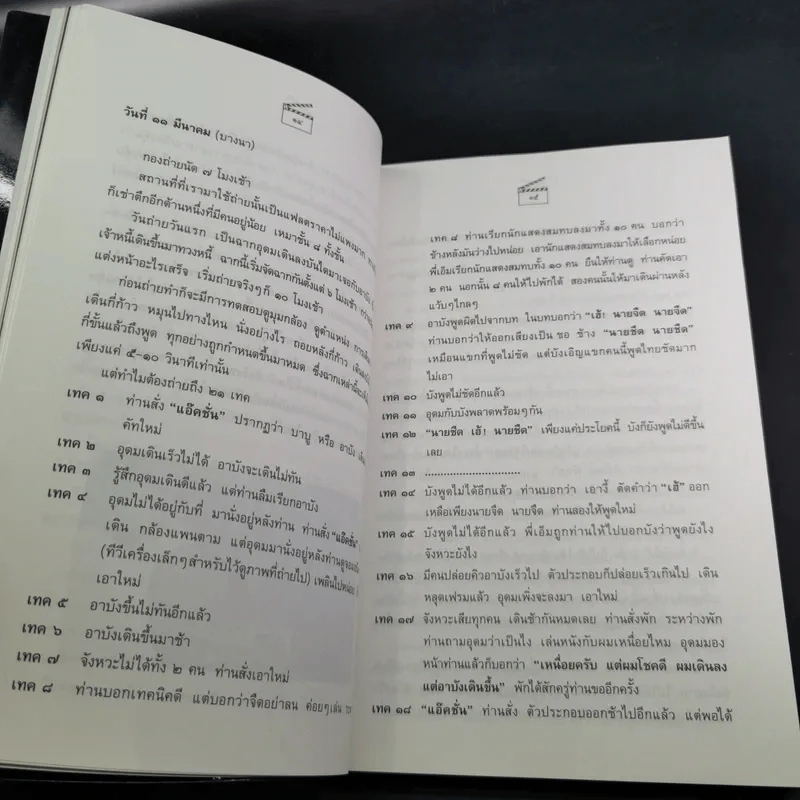 ๑๔
วันที่ ๑๑ มีนาคม (บางนา)
กองถ่ายนัด ๗ โมงเช้า
สถานที่ที่เรามาใช้ถ่ายนั้นเป็นแฟลตราคาไม่แพงมาก
ก็เช่าตึกอีกด้านหนึ่งที่มีคนอยู่น้อย เหมาชั้น ๘ ทั้งชั้น
วันถ่ายวันแรก เป็นฉากอุดมเดินลงบันไดมาเจอกับอาบัง
เจ้าหนี้เดินขึ้นมาทวงหนี้ ฉากนี้เริ่มจัดฉากกันตั้งแต่ ๖ โมงเช้า กว่าจะ
แต่งหน้าอะไรเสร็จ เริ่มถ่ายจริงๆก็ ๑๐ โมงเช้า
ก่อนถ่ายทำก็จะมีการทดสอบดูมุมกล้อง ดูตำแหน่ง การเดิน
เดินกี่ก้าว หมุนไปทางไหน นั่งอย่างไร ถอยหลังกี่ก้าว
กี่ขั้นแล้วถึงพูด ทุกอย่างถูกกำหนดขึ้นมาหมด ซึ่งฉากเหล่านี้
เพียงแค่ ๕-๑๐ วินาทีเท่านั้น
แต่ทำไมต้องถ่ายถึง ๒๑ เทค
เทค ๑ ท่านสั่ง “แอ๊คชั่น” ปรากฏว่า บาบู หรือ อาบัง
คัทใหม่
เทค ๒ อุดมเดินเร็วไม่ได้ อาบังจะเดินไม่ทัน
เทค ๓ รู้สึกอุดมเดินดีแล้ว แต่ท่านลืมเรียกอาบัง
เทค ๔ อุดมไม่ได้อยู่กับที่ มานั่งอยู่หลังท่าน ท่านสั่ง “แอ๊คชั่น”
เดิน กล้องแพนตาม แต่อุดมมานั่งอยู่หลังท่านดูจอ
(ทีวีเครื่องเล็กๆสำหรับไว้ดูภาพที่ถ่ายไป) เพลินไปหน่อย
เอาใหม่
เทค ๕ อาบังขึ้นไม่ทันอีกแล้ว
เทค ๖ อาบังเดินขึ้นมาช้า
เทค ๗ จังหวะไม่ได้ทั้ง ๒ คน ท่านสั่งเอาใหม่
เทค ๘ ท่านบอกเทคนิคดี แต่บอกว่าจืดอย่าลน ค่อยๆเล่น
๑๕
เทค ๘ ท่านเรียกนักแสดงสมทบลงมาทั้ง ๑๐ คน บอกว่า
ข้างหลังมันว่างไปหน่อย เอานักแสดงสมทบลงมาให้เลือกหน่อย
พี่เอ็มเรียกนักแสดงสมทบทั้ง ๑๐ คน ยืนให้ท่านดู ท่านคัดเอา
๒ คน นอกนั้น ๘ คนให้ไปพักได้ สองคนนั้นให้มาเดินผ่านหลัง
แว้บๆไกลๆ
เทค ๙ อาบังพูดผิดไปจากบท ในบทบอกว่า “เฮ้! นายจืด นายจืด”
ท่านบอกว่าให้ออกเสียงเป็น ชอ ช้าง “นายชืด นายชืด”
เหมือนแขกที่พูดไม่ชัด แต่บังเอิญแขกคนนี้พูดไทยชัดมาก
ไม่เอา
เทค ๑๐ บังพูดไม่ชัดอีกแล้ว
เทค ๑๑ อุดมกับบังพลาดพร้อมๆกัน
เทค ๑๒ “นายชืด เฮ้! นายชืด” เพียงแค่ประโยคนี้ บังก็ยังพูดไม่ดีขึ้น
เลย
เทค ๑๓ ..............................
เทค ๑๔ บังพูดไม่ได้อีกแล้ว ท่านบอกว่า เอางี้ ตัดคำว่า “เฮ้” ออก
เหลือเพียงนายจืด นายจืด ท่านลองให้พูดใหม่
เทค ๑๕ บังพูดไม่ได้อีกแล้ว พี่เอ็มถูกท่านให้ไปบอกบังว่าพูดยังไง
จังหวะยังไง
เทค ๑๖ มีคนปล่อยคิวอาบังเร็วไป ตัวประกอบก็ปล่อยเร็วเกินไป เดิน
หลุดเฟรมแล้ว อุดมเพิ่งจะลงมา เอาใหม่
เทค ๑๗ จังหวะเสียทุกคน เดินช้ากันหมดเลย ท่านสั่งพัก ระหว่างพัก
ท่านถามอุดมว่าเป็นไง เล่นหนังกับผมเหนื่อยไหม อุดมมอง
หน้าท่านแล้วก็บอกว่า “เหนื่อยครับ แต่ผมโชคดี ผมเดินลง
แต่อาบังเดินขึ้น” พักได้สักครู่ท่านขออีกครั้ง
เทค ๑๘ “แอ๊คชั่น” ท่านสั่ง ตัวประกอบออกช้าไปอีกแล้ว แต่พอได้